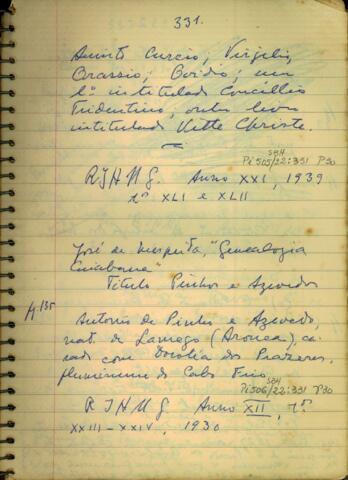 331.
Quinto Curcio, Virgilio,
Orassio; Ovidio; um
L.º intitulado Concillio
Tridentino, outro livro
intitulado Vitte Christe.
SBH
Pi 505/22:331 P30
RIHMG. Anno XXI, 1939
nos XLI e XLII
José de Mesquita, "Genealogia
Cuiabana"
Titulo Pinhos e Azevedos
p. 135
Antonio de Pinho e Azevedo,
nat. de Lamego (Arouca), ca-
sado com Dorotéa dos Prazeres,
fluminense de Cabo Frio
SBH
Pi 506/22:331 P30
RIHMG Anno XII, nos
XXIII-XXIV, 1930